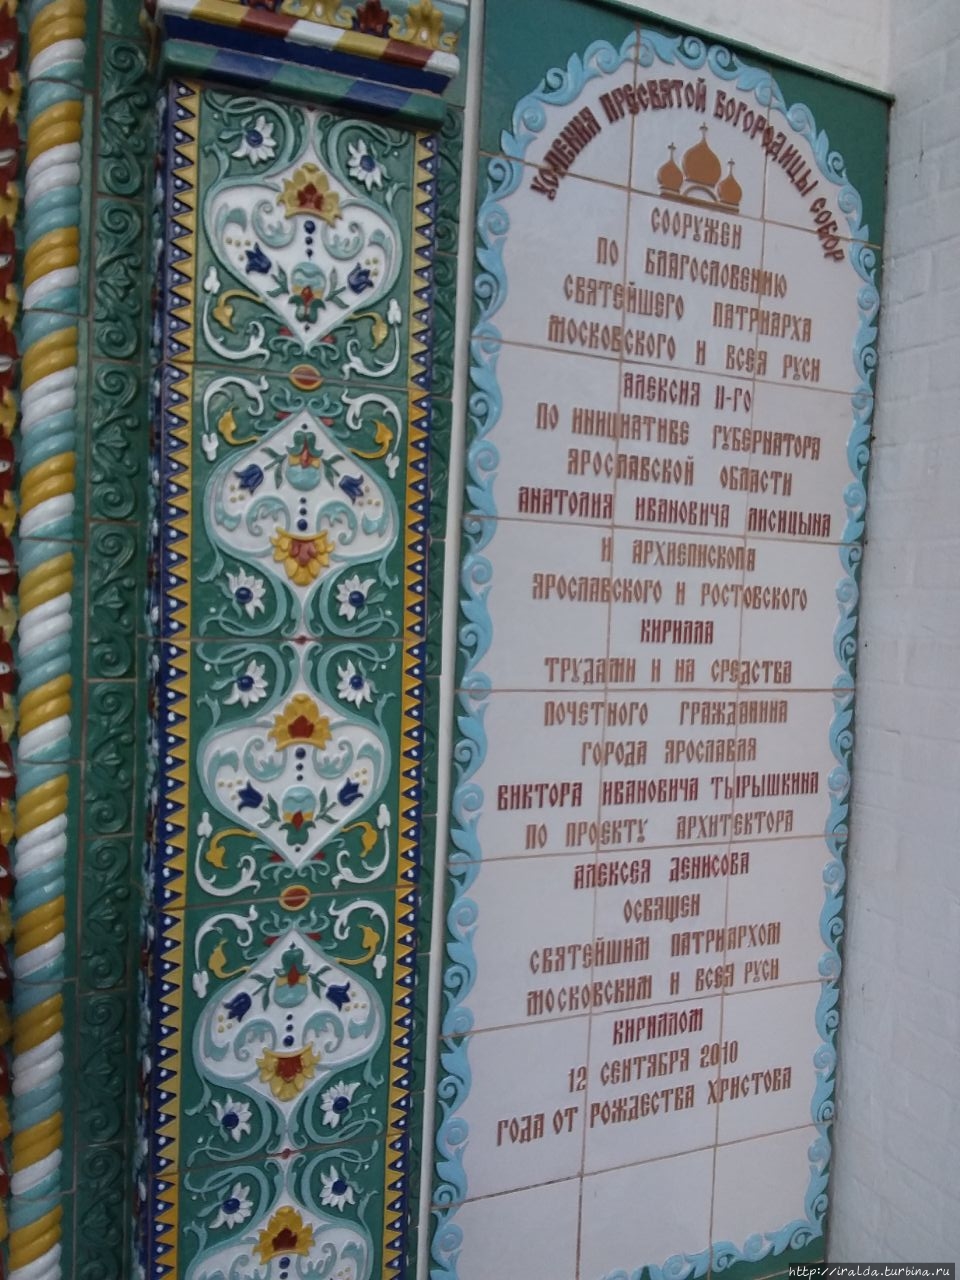 УСПЕНИЯ ПРЕСВЯТОЙ БОГОРОДИЦЫ СОБОР
СООРУЖЕН
ПО БЛАГОСЛОВЕНИЮ
СВЯТЕЙШЕГО ПАТРИАРХА
МОСКОВСКОГО И ВСЕЯ РУСИ
АЛЕКСИЯ II-ГО
ПО ИНИЦИАТИВЕ ГУБЕРНАТОРА
ЯРОСЛАВСКОЙ ОБЛАСТИ
АНАТОЛИЯ ИВАНОВИЧА ЛИСИЦЫНА
И АРХИЕПИСКОПА
ЯРОСЛАВСКОГО И РОСТОВСКОГО
КИРИЛЛА
ТРУДАМИ И НА СРЕДСТВА
ПОЧЕТНОГО ГРАЖДАНИНА
ГОРОДА ЯРОСЛАВЛЯ
ВИКТОРА ИВАНОВИЧА ТЫРЫШКИНА
ПО ПРОЕКТУ АРХИТЕКТОРА
АЛЕКСЕЯ ДЕНИСОВА
ОСВЯЩЕН
СВЯТЕЙШИМ ПАТРИАРХОМ
МОСКОВСКИМ И ВСЕЯ РУСИ
КИРИЛЛОМ
12 СЕНТЯБРЯ 2010
ГОДА ОТ РОЖДЕСТВА ХРИСТОВА
http://iralda.turbina.ru